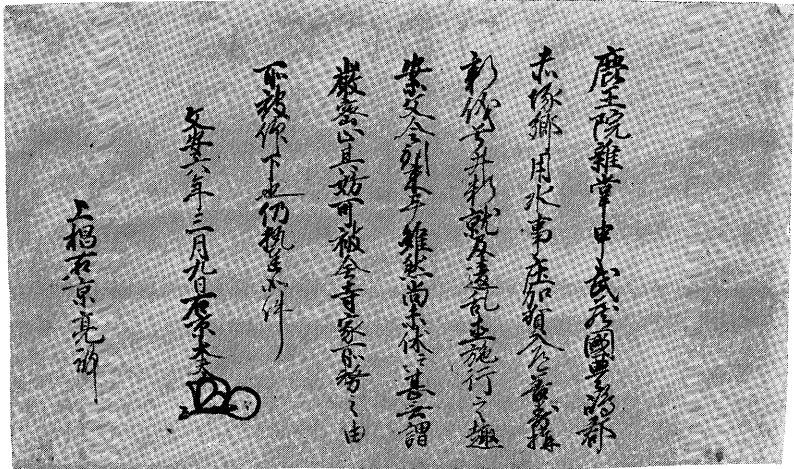 鹿王院雑掌申武蔵国豊嶋郡
赤塚郷用水事庄加賀入道善寿構
新儀云々太無謂就及違乱五施行之趣
案文令到来畢雖然尚未休云々甚無謂
厳密止其妨可被全寺家所務之由
所被仰下也仍執達如件
文安六年三月九日右京大夫
上椙右京亮殿